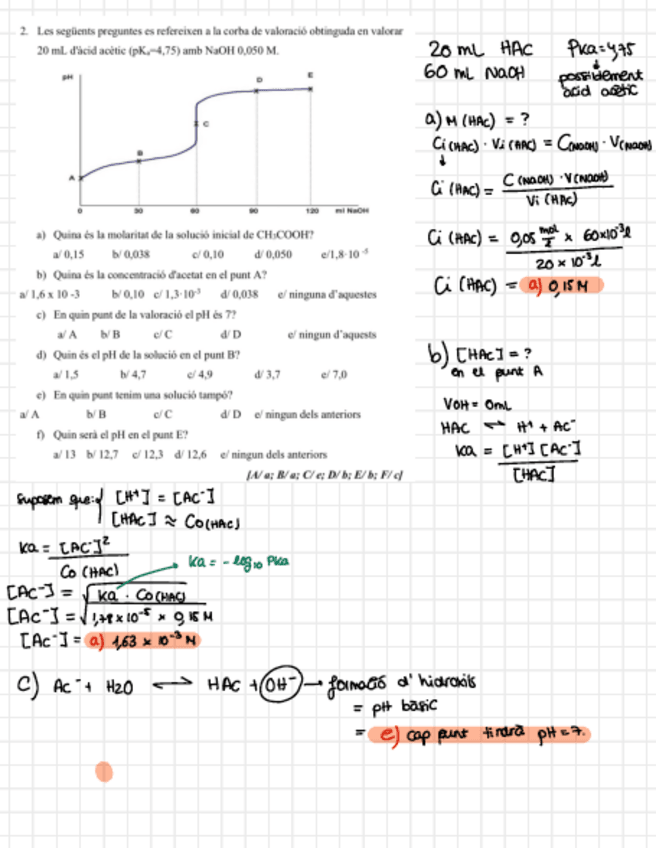 2. Les següents preguntes es refereixen a la corba de valoració obtinguda en valorar
20 mL d'àcid acètic (pKa=4,75) amb NaOH 0,050 M.
pH
A
B
C
D
E
0 30 60 90 120 ml NaOH
a) Quina és la molaritat de la solució inicial de CH3COOH?
a/ 0,15 b/ 0,038 c/ 0,10 d/ 0,050 e/1,8·10⁻⁵
b) Quina és la concentració d'acetat en el punt A?
a/ 1,6 x 10 -3 b/ 0,10 c/ 1,3·10⁻³ d/ 0,038 e/ ninguna d'aquestes
c) En quin punt de la valoració el pH és 7?
a/ A b/ B c/ C d/ D e/ ningun d'aquests
d) Quin és el pH de la solució en el punt B?
a/ 1,5 b/ 4,7 c/ 4,9 d/ 3,7 e/ 7,0
e) En quin punt tenim una solució tampó?
a/ A b/ B c/ C d/ D e/ ningun dels anteriors
f) Quin serà el pH en el punt E?
a/ 13 b/ 12,7 c/ 12,3 d/ 12,6 e/ ningun dels anteriors
[A/ a; B/ a; C/ e; D/ b; E/ b; F/ c]
20 mL HAc PKa=4,75
60 mL NaOH possiblement
àcid acètic
a) M (HAc) = ?
Ci (HAc) · Vi (HAc) = C(NaOH) · V(NaOH)
Ci (HAc) = C (NaOH) · V(NaOH)
Vi (HAc)
Ci (HAc) = 0,05 mol/l x 60x10⁻³l
20 x 10⁻³l
Ci (HAc) = a) 0,15 M
b) [HAc] = ?
en el punt A
VOH = 0mL
HAc ⇌ H⁺ + Ac⁻
Ka = [H⁺] [Ac⁻]
[HAc]
Suposem que: [H⁺] = [Ac⁻]
[HAc] ≈ Co(HAc)
Ka = [Ac⁻]²
Co (HAc)
Ka = - log10 PKa
[Ac⁻] = √Ka · Co(HAc)
[Ac⁻] = √1,78 x 10⁻⁵ x 0,15 M
[Ac⁻] = a) 1,63 x 10⁻³ M
c) Ac⁻ + H2O ⇌ HAc + OH⁻ → formació d' hidroxils
= pH bàsic
= e) cap punt tindrà pH = 7.